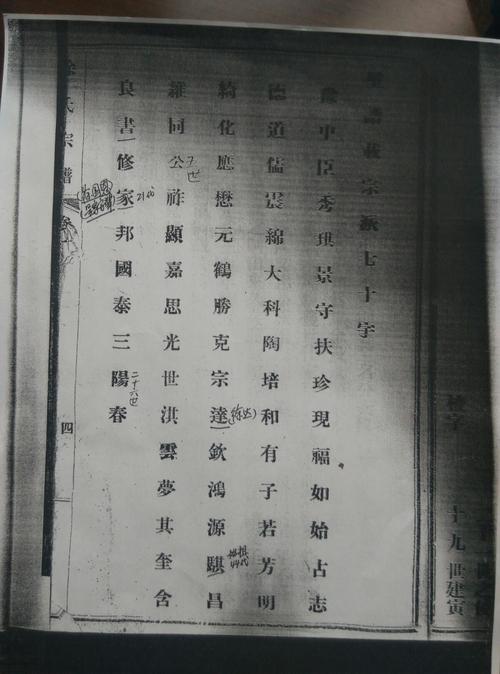 十九 世建寅
譜載宗派七十字
中臣秀琪景守扶珍現福如始占志
德道儒震綿大科陶培和有子若芳明
綺化應懋元鶴勝克宗達欽鴻源騏昌
(徐达)
維同公祚顯嘉思光世淇雲夢其奎含
良書修家邦國泰三陽春
二十六世
氏宗譜
四